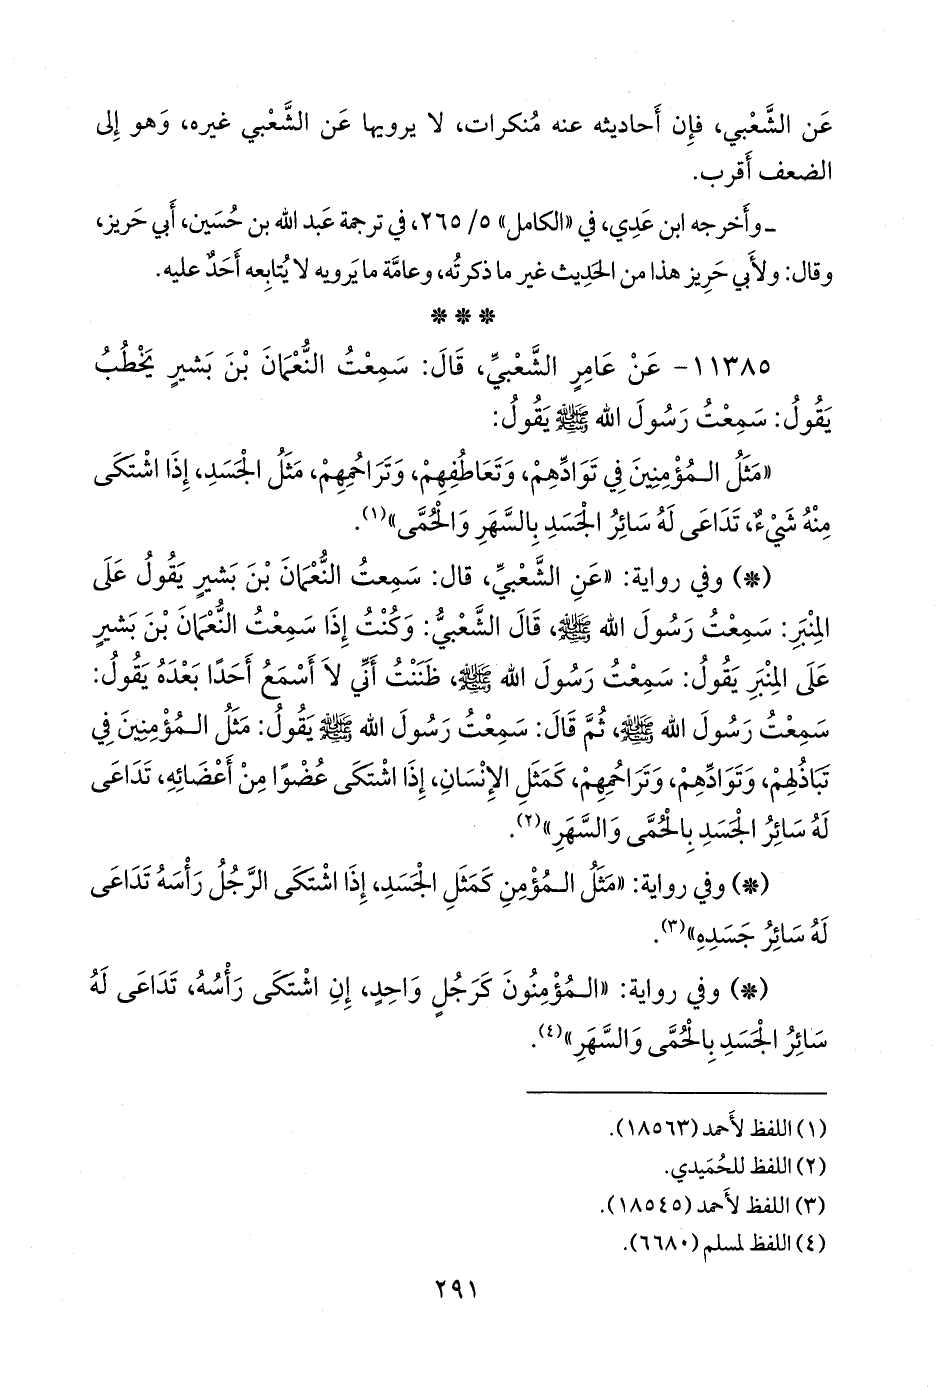 عَن الشَّعْبي، فإِن أَحاديثه عنه مُنكرات، لا يرويها عَن الشَّعْبي غيره، وَهو إِلى
الضعف أَقرب.
ـ وأَخرجه ابن عَدِي، في «الكامل» ٥/ ٢٦٥، في ترجمة عبد الله بن حُسَين، أَبي حَريز،
وقال: ولأَبي حَرِيز هذا من الحَدِيث غير ما ذكرتُه، وعامَّة ما يَرويه لا يُتابِعه أَحَدٌ عليه.
* * *
١١٣٨٥- عَنْ عَامِرٍ الشَّعْبِيِّ، قَالَ: سَمِعْتُ النُّعْمَانَ بْنَ بَشيرٍ يَخْطُبُ
يَقُولُ: سَمِعْتُ رَسُولَ الله ﷺ يَقُولُ:
«مَثَلُ الـمُؤْمِنِينَ فِي تَوَادِّهِمْ، وَتَعَاطُفِهِمْ، وَتَرَاحُمِهِمْ، مَثَلُ الْجَسَدِ، إِذَا اشْتَكَى
مِنْهُ شَيْءٌ، تَدَاعَى لَهُ سَائِرُ الْجَسَدِ بِالسَّهَرِ وَالْحُمَّى»(١).
(*) وفي رواية: «عَنِ الشَّعْبِيِّ، قال: سَمِعتُ النُّعْمَانَ بْنَ بَشيرٍ يَقُولُ عَلَى
المِنْبَرِ: سَمِعْتُ رَسُولَ الله ﷺ، قَالَ الشَّعْبِيُّ: وَكُنْتُ إِذَا سَمِعْتُ النُّعْمَانَ بْنَ بَشيرٍ
عَلَى المِنْبَرِ يَقُولُ: سَمِعْتُ رَسُولَ الله ﷺ، ظَنَنْتُ أَنِّي لاَ أَسْمَعُ أَحَدًا بَعْدَهُ يَقُولُ:
سَمِعْتُ رَسُولَ الله ﷺ، ثُمَّ قَالَ: سَمِعْتُ رَسُولَ الله ﷺ يَقُولُ: مَثَلُ الـمُؤْمِنِينَ فِي
تَبَاذُلِهِمْ، وَتَوَادِّهِمْ، وَتَرَاحُمِهِمْ، كَمَثَلِ الإِنْسَانِ، إِذَا اشْتَكَى عُضْوًا مِنْ أَعْضَائِهِ، تَدَاعَى
لَهُ سَائِرُ الْجَسَدِ بِالْحُمَّى وَالسَّهَرِ»(٢).
(*) وفي رواية: «مَثَلُ الـمُؤْمِنِ كَمَثَلِ الْجَسَدِ، إِذَا اشْتَكَى الرَّجُلُ رَأْسَهُ تَدَاعَى
لَهُ سَائِرُ جَسَدِهِ»(٣).
(*) وفي رواية: «الـمُؤْمِنُونَ كَرَجُلٍ وَاحِدٍ، إِنِ اشْتَكَى رَأْسُهُ، تَدَاعَى لَهُ
سَائِرُ الْجَسَدِ بِالْحُمَّى وَالسَّهَرِ»(٤).
(١) اللفظ لأَحمد (١٨٥٦٣).
(٢) اللفظ للحُمَيدي.
(٣) اللفظ لأَحمد (١٨٥٤٥).
(٤) اللفظ لمسلم (٦٦٨٠).
٢٩١